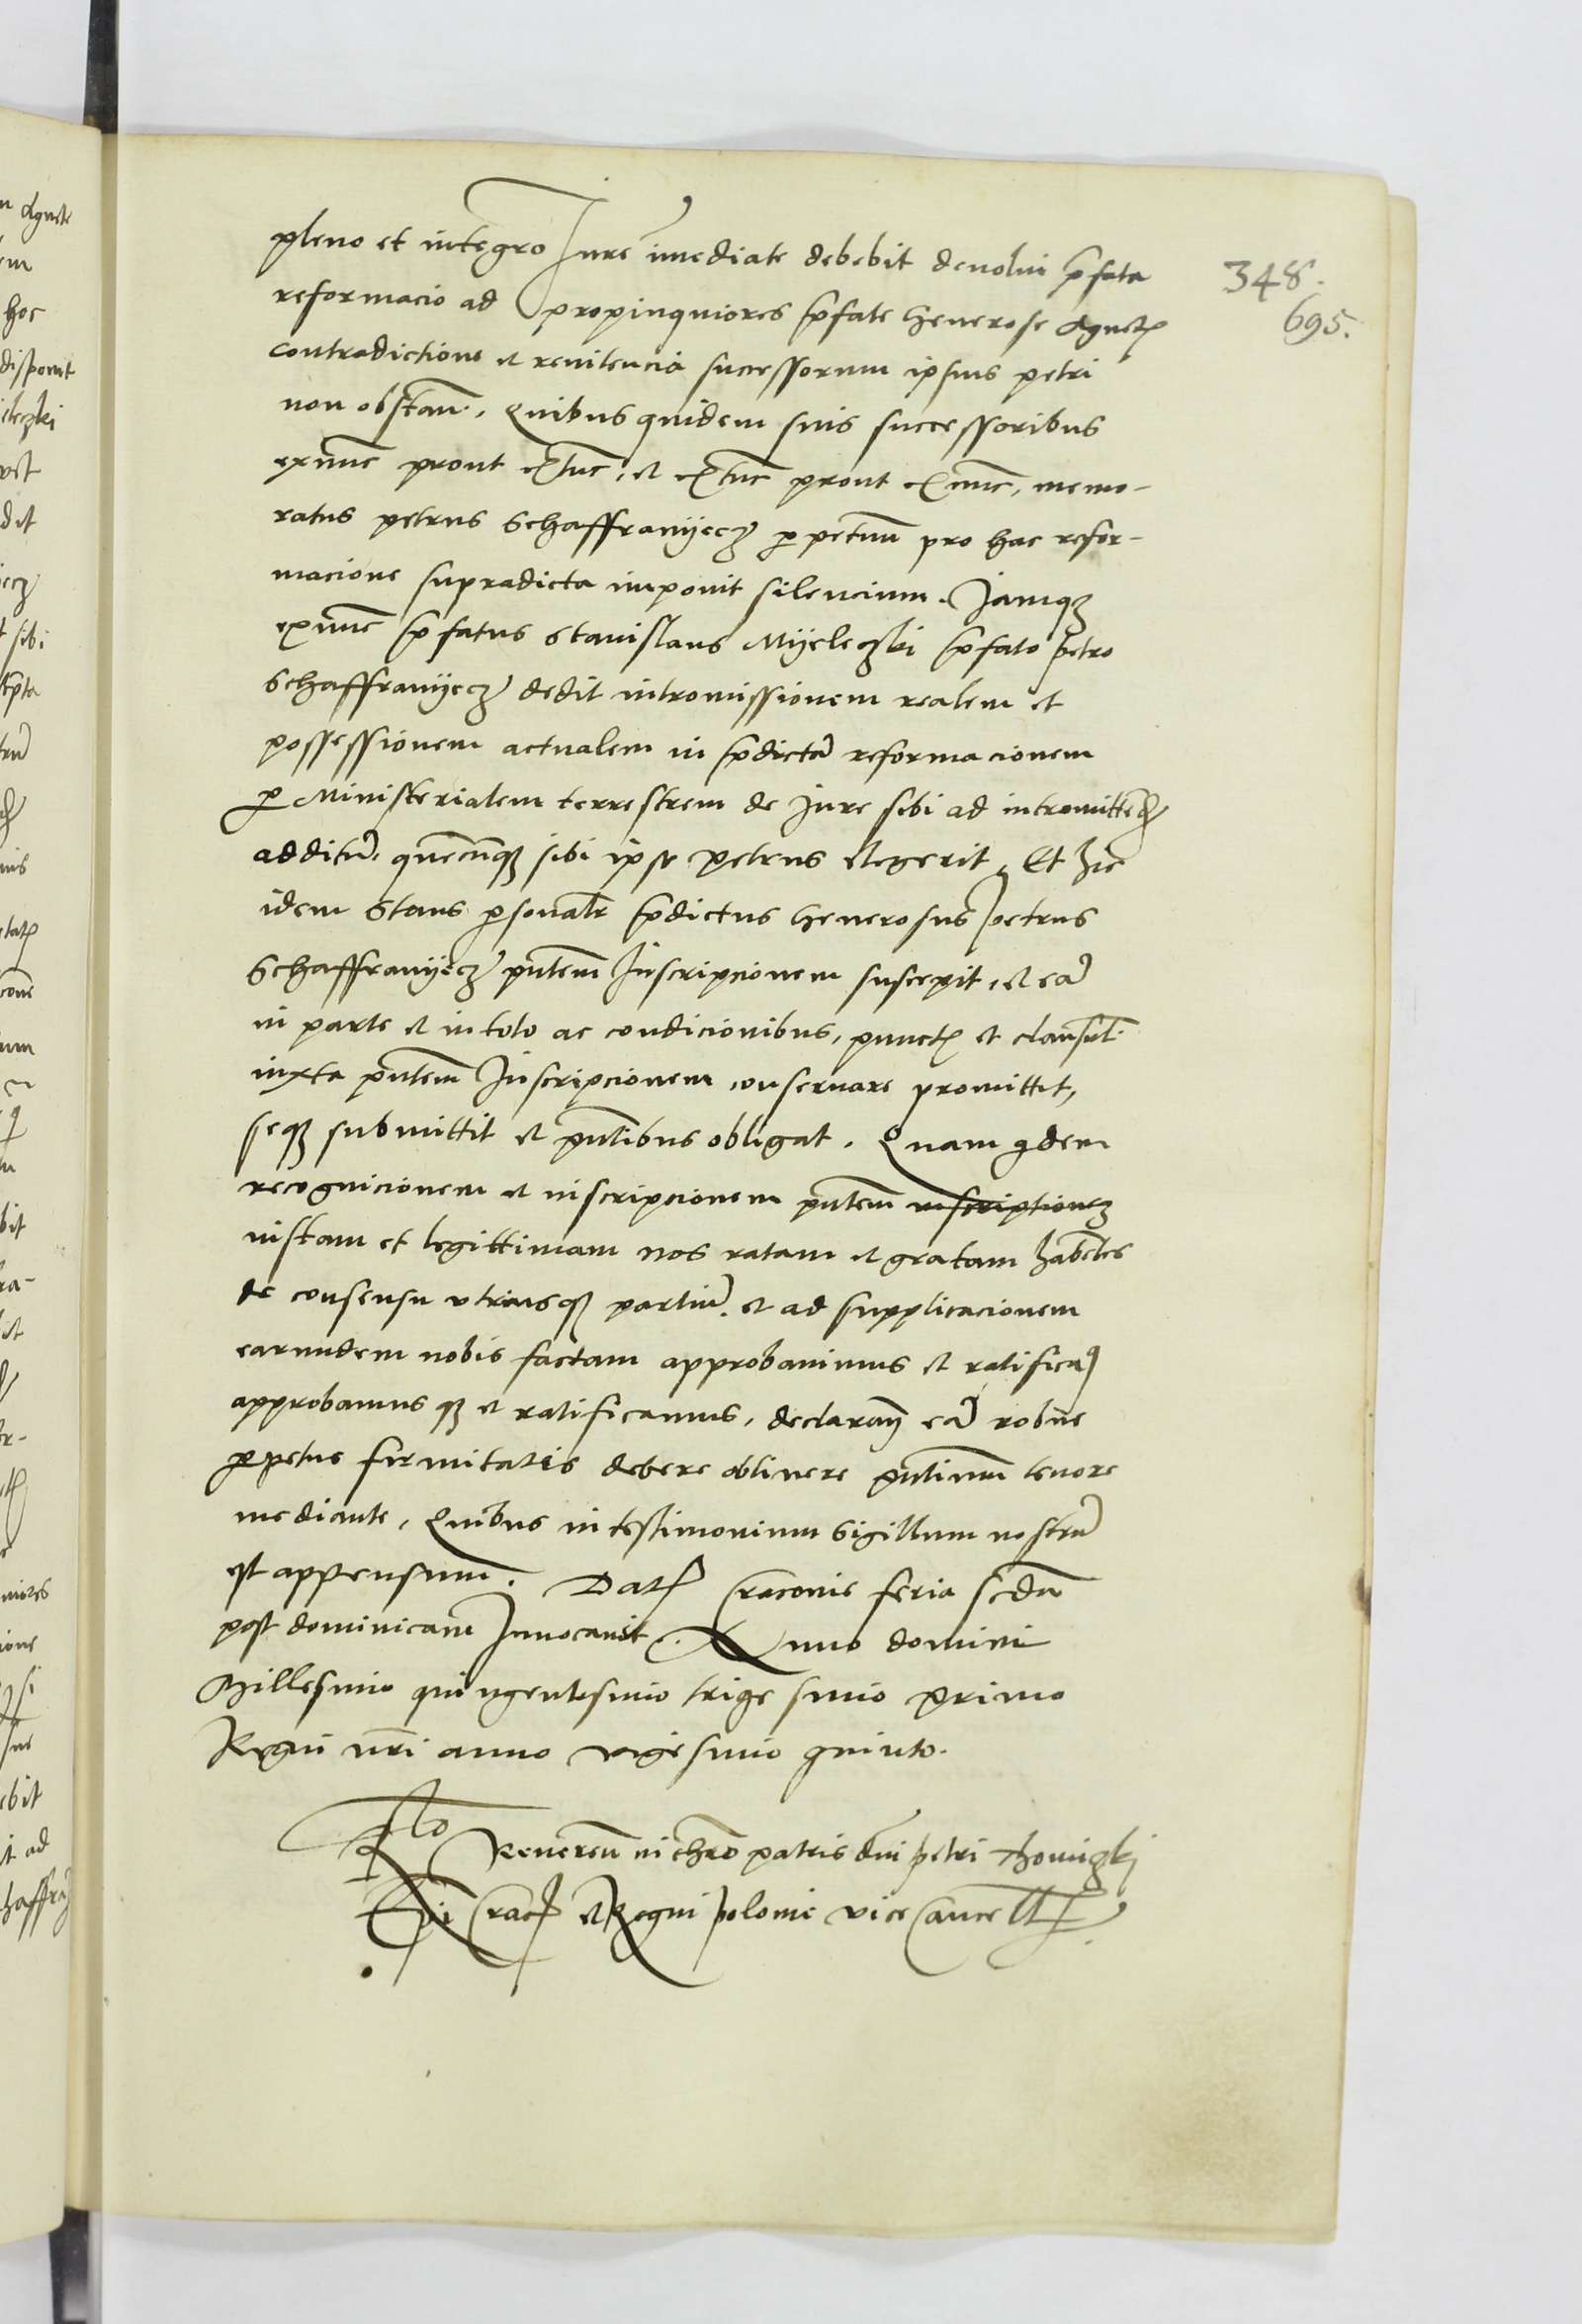 pleno et integro Jure im̄ediate debebit deuolui p̄fata
reformacio ad propinquiores p̄fate Generose Agnetꝭ
contradictione et renitencia successorum ipsius petri
non obstan̄. Quibus quidem suis successoribus
exnunc prout extunc, et extunc prout exnunc, memo-
ratus petrus Schaffranyecz ꝑpetuum pro hac refor-
macione supradicta imponit silencium. Jamqꝫ
exnunc p̄fatus Stanislaus Myeleczki p̄fato petro
Schaffranyecz dedit intromissionem realem et
possessionem actualem in p̄dictā reformacionem
ꝑ Ministerialem terrestrem de Jure sibi ad intromittend̄
additū, quemcūqꝫ sibi ipse petrus elegerit, Et hic
idem Stans ꝑsonalr̄ p̄dictus Generosus petrus
Schaffranyecz pn̄tem Inscripcionem suscepit, et eā
in parte et in toto ac condicionibus, punctꝭ et clausul̄
iuxta pn̄tem Inscripcionem conseruare promittit,
seqꝫ submittit et pn̄tibus obligat. Quam qͥdem
recognicionem et inscripcionem pn̄tem inscriptionēꝫ
iustam et legittimam nos ratam et gratam habēntes
de consensu vtriusqꝫ partiū. et ad supplicacionem
earundem nobis factam approbauimus et ratificaꝰ
approbamusqꝫ et ratificamus, declaran̄ eā robur
ꝑpetue firmitatis debere obtinere pn̄tium tenore
mediante, Quibus in testimonium Sigillum nostrū
est appensum. Datꝭ Cracouie feria scd̄a
post dominicam Inuocauit. Anno domini
Millesimo quingentesimo trigesimo primo
Regni nr̄i anno vigesimo quinto.
Rlo Reueren̄ in chr̄o patris dn̄i petri Thomiczkj
Epi Crac̄ et Regni polonie vicecancellꝭ
348.
695.